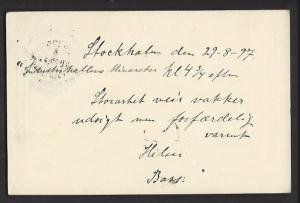 Stockholm den 29-8-97
Industrihallens Minareter kl 4 3/4 eftm
Storartet veir vakker
udsigt men forfærdelig
varmt
Hilsen